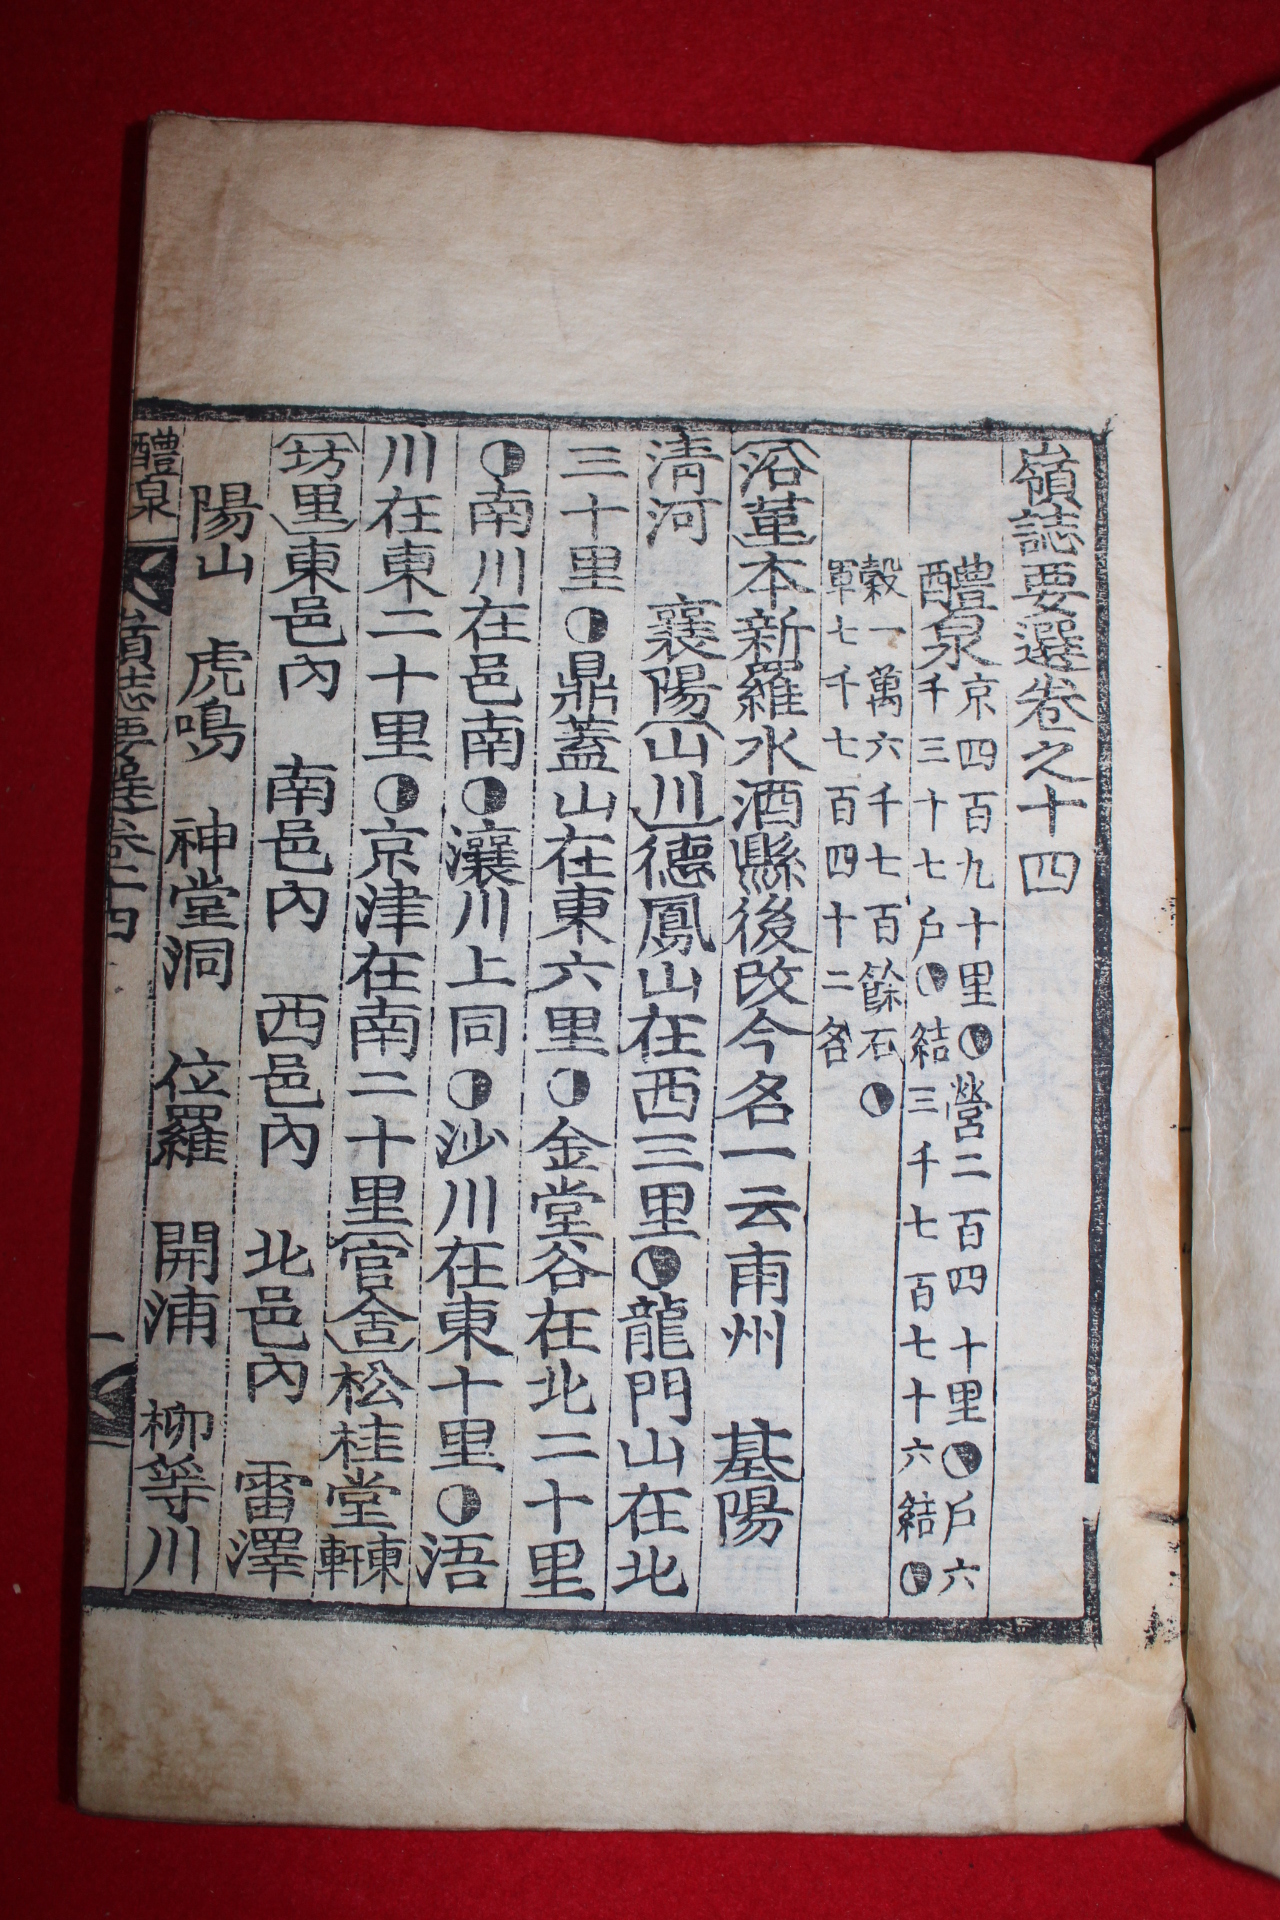 嶺誌要選卷之十四
醴泉 京四百九十里◑營二百四十里◑戶六
千三十七戶◑結三千七百七十六結◑
穀一萬六千七百餘石◑
軍七千七百四十二名
沿革本新羅水酒縣後改今名一云甫州 基陽
淸河 襄陽山川德鳳山在西三里◑龍門山在北
三十里◑鼎蓋山在東六里◑金堂谷在北二十里
◑南川在邑南◑瀼川上同◑沙川在東十里◑浯
川在東二十里◑京津在南二十里官舍松桂堂東軒
坊里東邑內 南邑內 西邑內 北邑內 雷澤
陽山 虎鳴 神堂洞 位羅 開浦 柳等川
醴泉 嶺誌要選卷十四 一